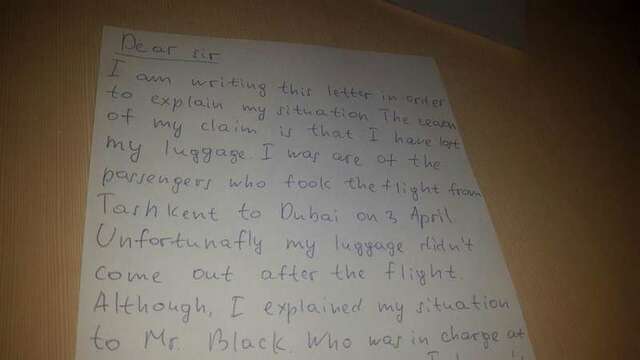 Dear sir
I am writing this letter in order
to explain my situation The reason
of my claim is that I have lost
my luggage. I was are of the
passengers who took the flight from
Tashkent to Dubai on 3 April.
Unfortunatly my luggage didn't
come out after the flight.
Although, I explained my situation
to Mr. Black. Who was in charge at